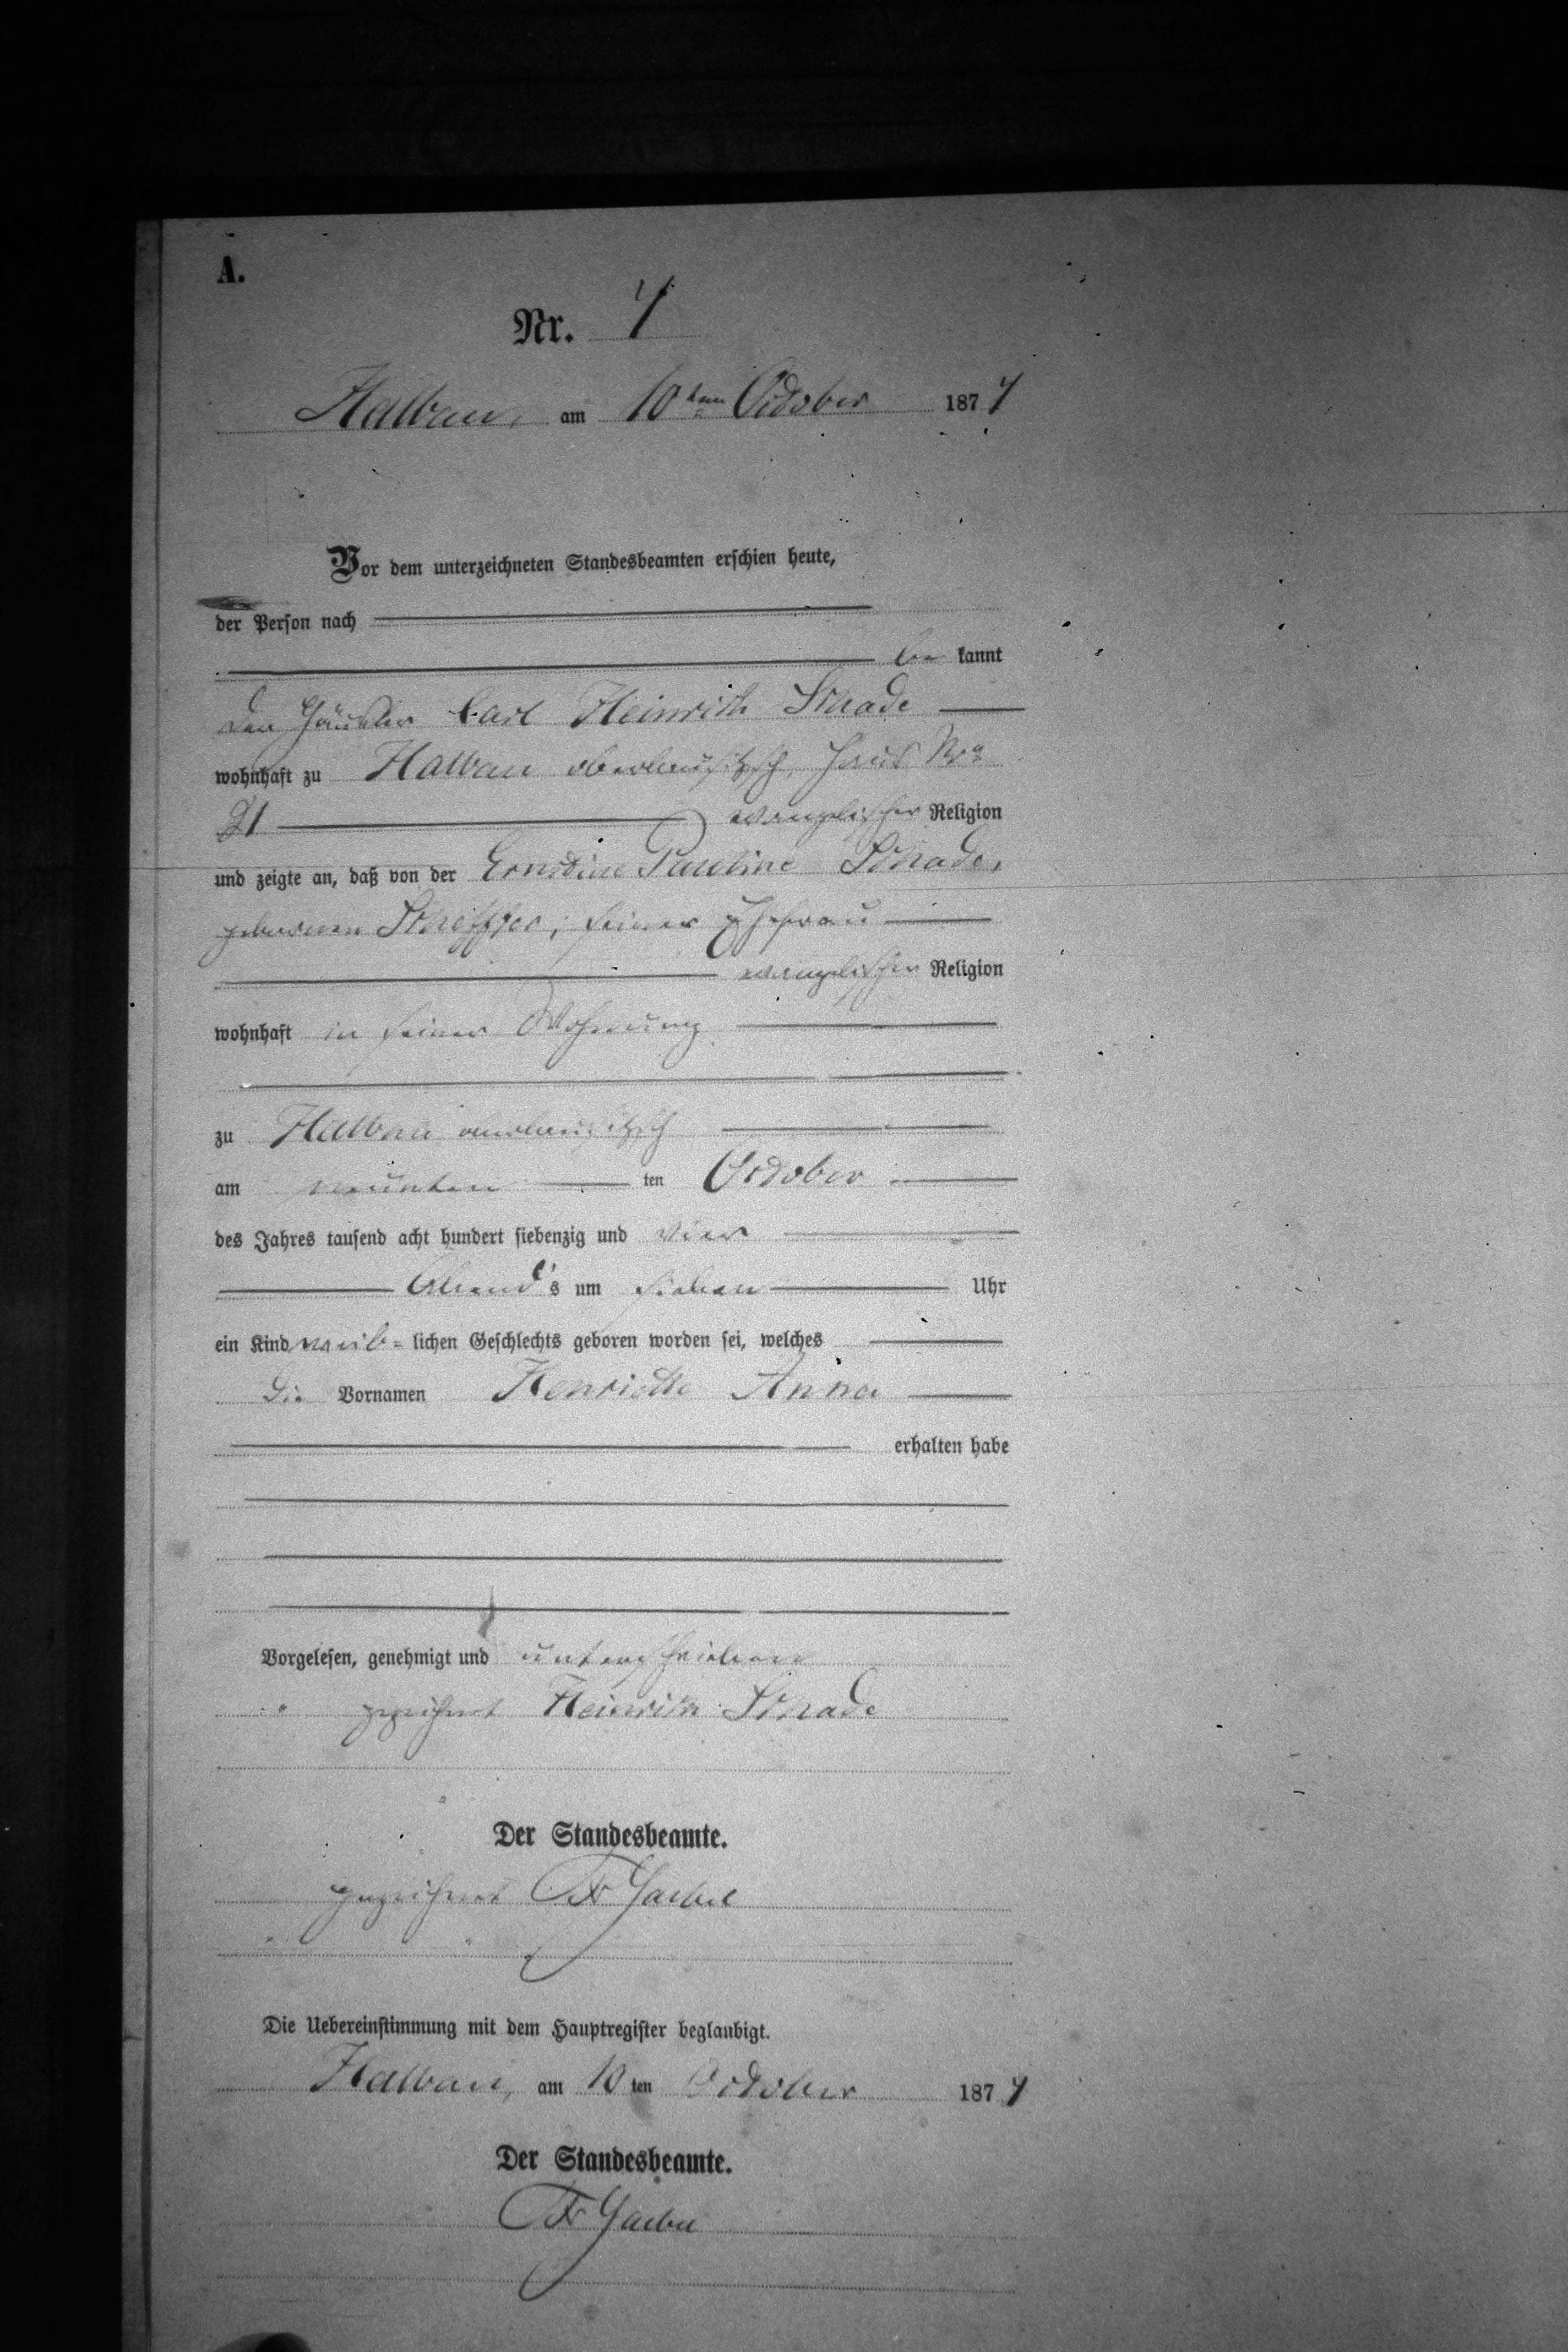 A.
Nr. 4
Halbau, am 10ten October 1874
Vor dem unterzeichneten Standesbeamten erschien heute,
der Person nach
be kannt
der Häusler Carl Heinrich Schade
wohnhaft zu Halbau oberlausitzsch, Haus Nro
21 evangelischer Religion
und zeigte an, daß von der Ernstine Pauline Schade,
geborenen seiner Ehefrau
evangelischer Religion
wohnhaft in seiner Wohnung
zu Halbau oberlausitzsch
am neunten ten October
des Jahres tausend acht hundert siebenzig und vier
Abend's um sieben Uhr
ein Kind weib= lichen Geschlechts geboren worden sei, welches
die Vornamen Henriette Anna
erhalten habe
Vorgelesen, genehmigt und unterschrieben
gezeichnet Heinrich Schade
Der Standesbeamte.
gezeichnet Fr
Die Uebereinstimmung mit dem Hauptregister beglaubigt.
Halbau, am 10 ten October 1874
Der Standesbeamte.
Fr